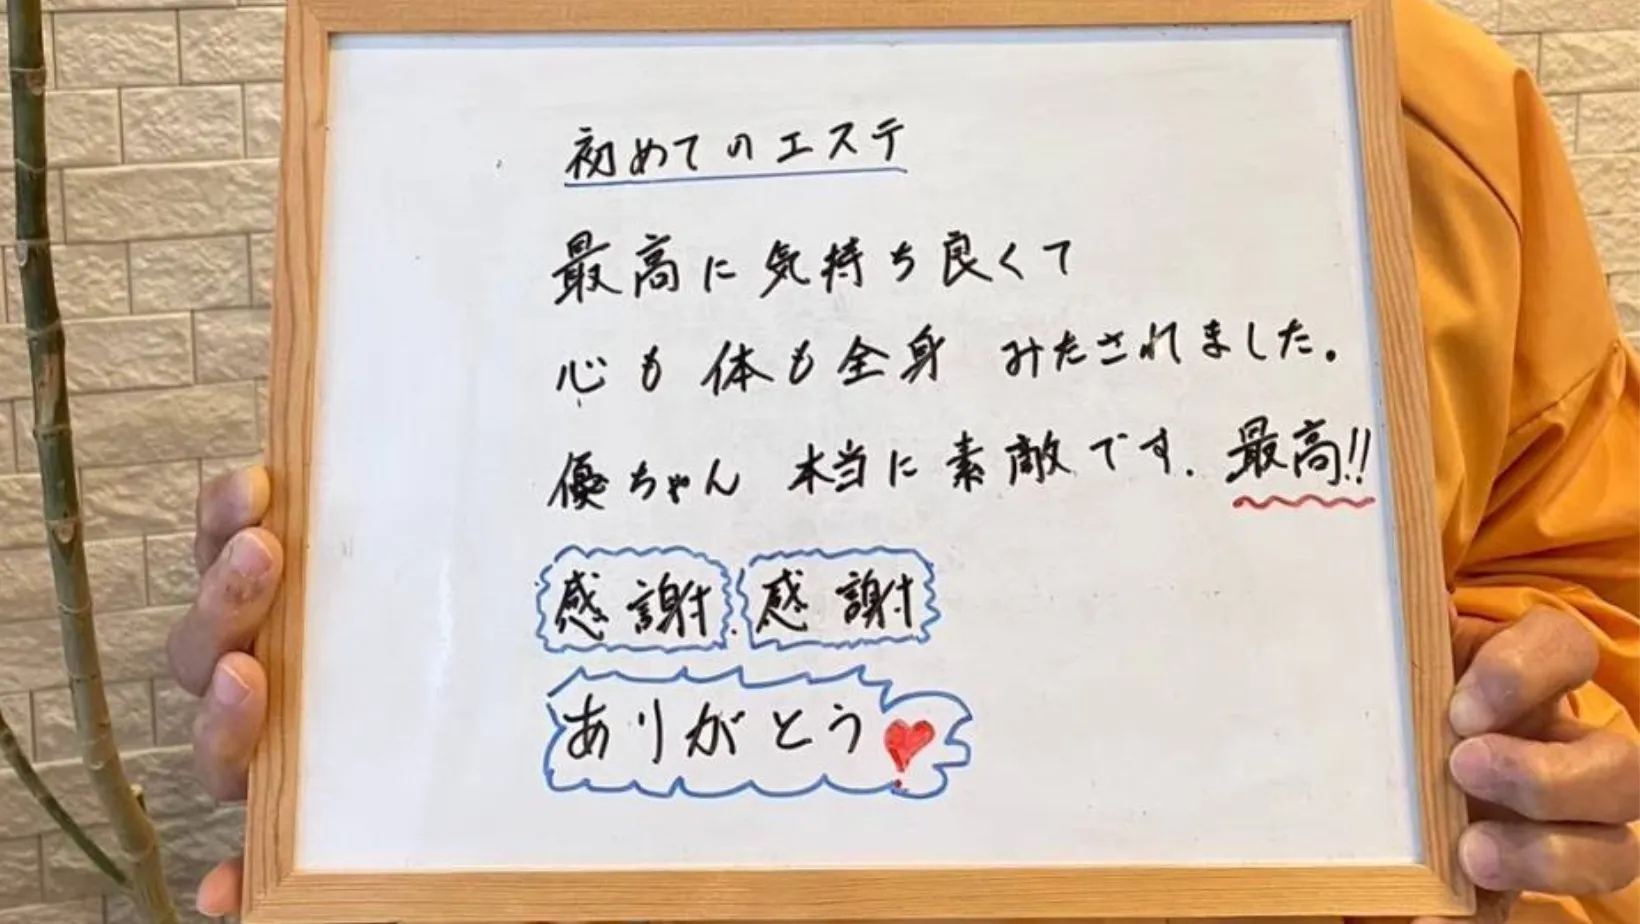 初めてのエステ
最高に気持ち良くて
心も体も全身 みたされました。
優ちゃん 本当に素敵です. 最高!!
感謝.感謝
ありがとう❤